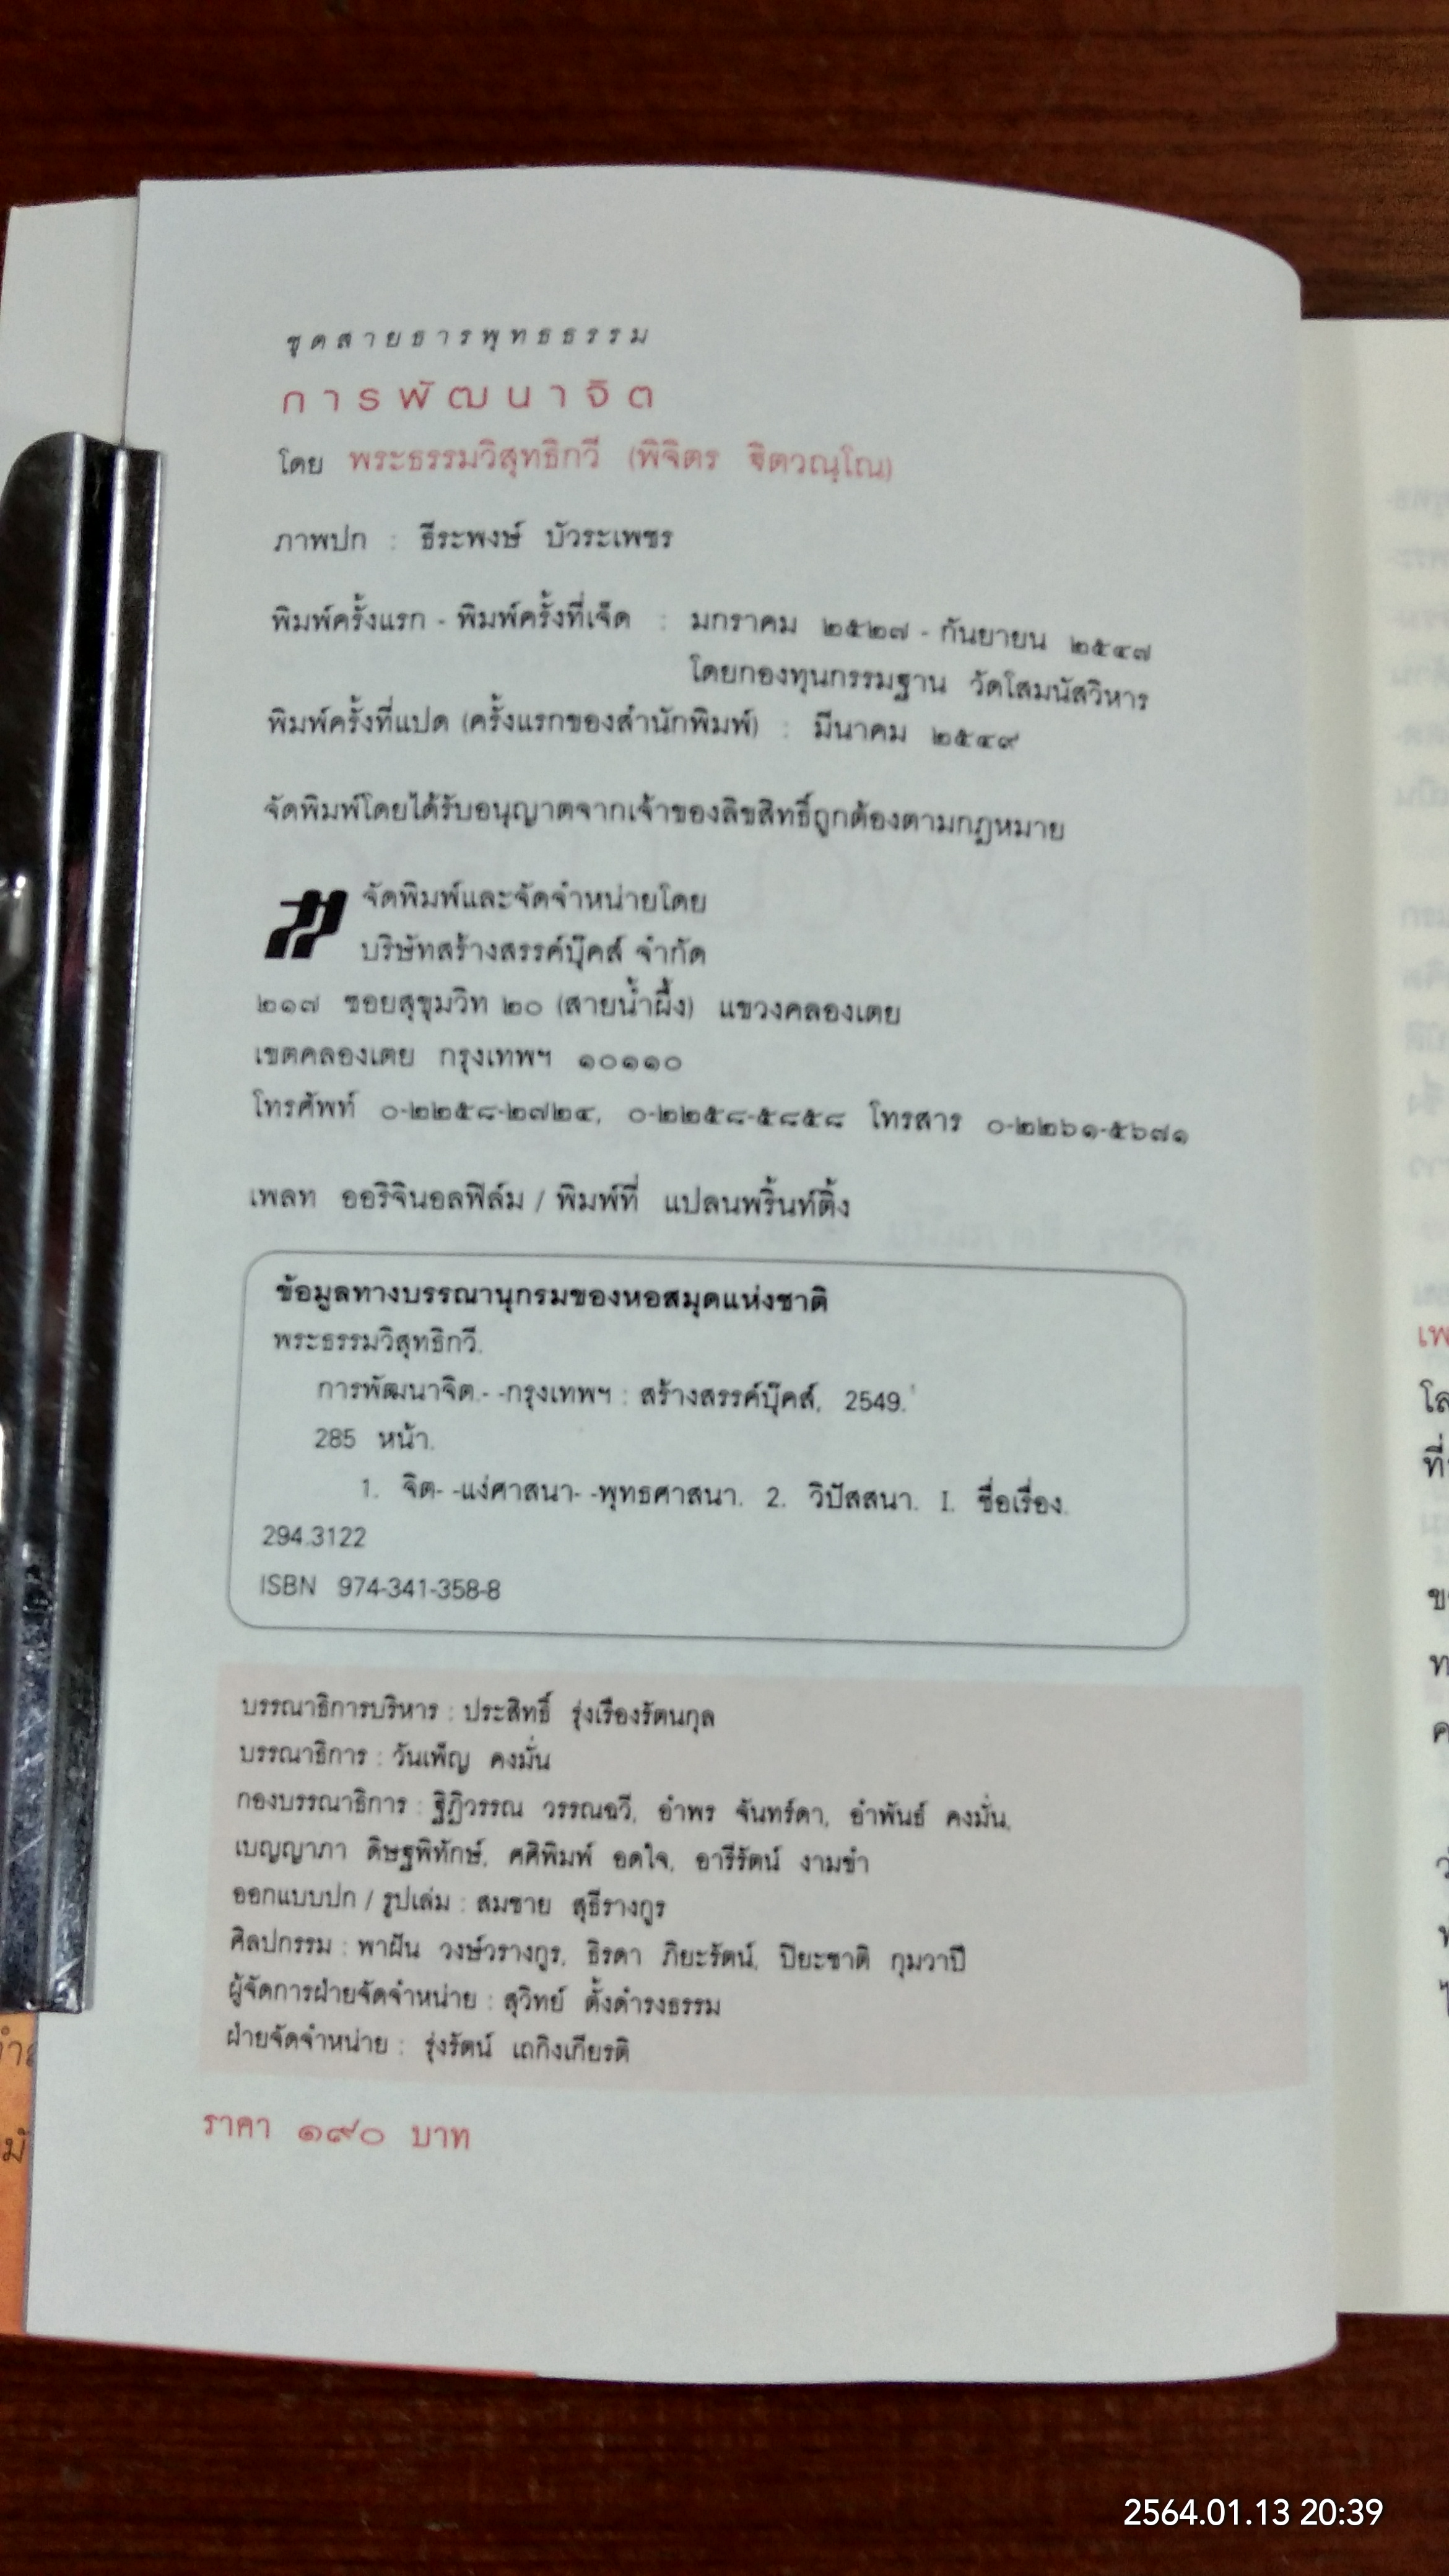 ชุดสายธารพุทธธรรม
การพัฒนาจิต
โดย พระธรรมวิสุทธิกวี (พิจิตร ฐิตวณฺโณ)
ภาพปก : ธีระพงษ์ บัวระเพชร
พิมพ์ครั้งแรก - พิมพ์ครั้งที่เจ็ด : มกราคม ๒๕๒๗ - กันยายน ๒๕๔๗
โดยกองทุนกรรมฐาน วัดโสมนัสวิหาร
พิมพ์ครั้งที่แปด (ครั้งแรกของสำนักพิมพ์) : มีนาคม ๒๕๔๙
จัดพิมพ์โดยได้รับอนุญาตจากเจ้าของลิขสิทธิ์ถูกต้องตามกฎหมาย
จัดพิมพ์และจัดจำหน่ายโดย
บริษัทสร้างสรรค์บุ๊คส์ จำกัด
๒๑๗ ซอยสุขุมวิท ๒๐ (สายน้ำผึ้ง) แขวงคลองเตย
เขตคลองเตย กรุงเทพฯ ๑๐๑๑๐
โทรศัพท์ ๐-๒๒๕๘-๒๗๒๔, ๐-๒๒๕๘-๕๘๕๘ โทรสาร ๐-๒๒๖๑-๕๖๗๑
เพลท ออริจินอลฟิล์ม / พิมพ์ที่ แปลนพริ้นท์ติ้ง
ข้อมูลทางบรรณานุกรมของหอสมุดแห่งชาติ
พระธรรมวิสุทธิกวี.
การพัฒนาจิต.- -กรุงเทพฯ : สร้างสรรค์บุ๊คส์, 2549.
285 หน้า.
1. จิต- -แง่ศาสนา- -พุทธศาสนา. 2. วิปัสสนา. I. ชื่อเรื่อง.
294.3122
ISBN 974-341-358-8
บรรณาธิการบริหาร : ประสิทธิ์ รุ่งเรืองรัตนกุล
บรรณาธิการ : วันเพ็ญ คงมั่น
กองบรรณาธิการ : ฐิฏิวรรณ วรรณฉวี, อำพร จันทร์ดา, อำพันธ์ คงมั่น,
เบญญาภา ดิษฐพิทักษ์, ศศิพิมพ์ อดใจ, อารีรัตน์ งามขำ
ออกแบบปก / รูปเล่ม : สมชาย สุธีรางกูร
ศิลปกรรม : พาฝัน วงษ์วรางกูร, ธิรดา ภิยะรัตน์, ปิยะชาติ กุมวาปี
ผู้จัดการฝ่ายจัดจำหน่าย : สุวิทย์ ตั้งดำรงธรรม
ฝ่ายจัดจำหน่าย : รุ่งรัตน์ เถกิงเกียรติ
ราคา ๑๙๐ บาท
2564.01.13 20:39